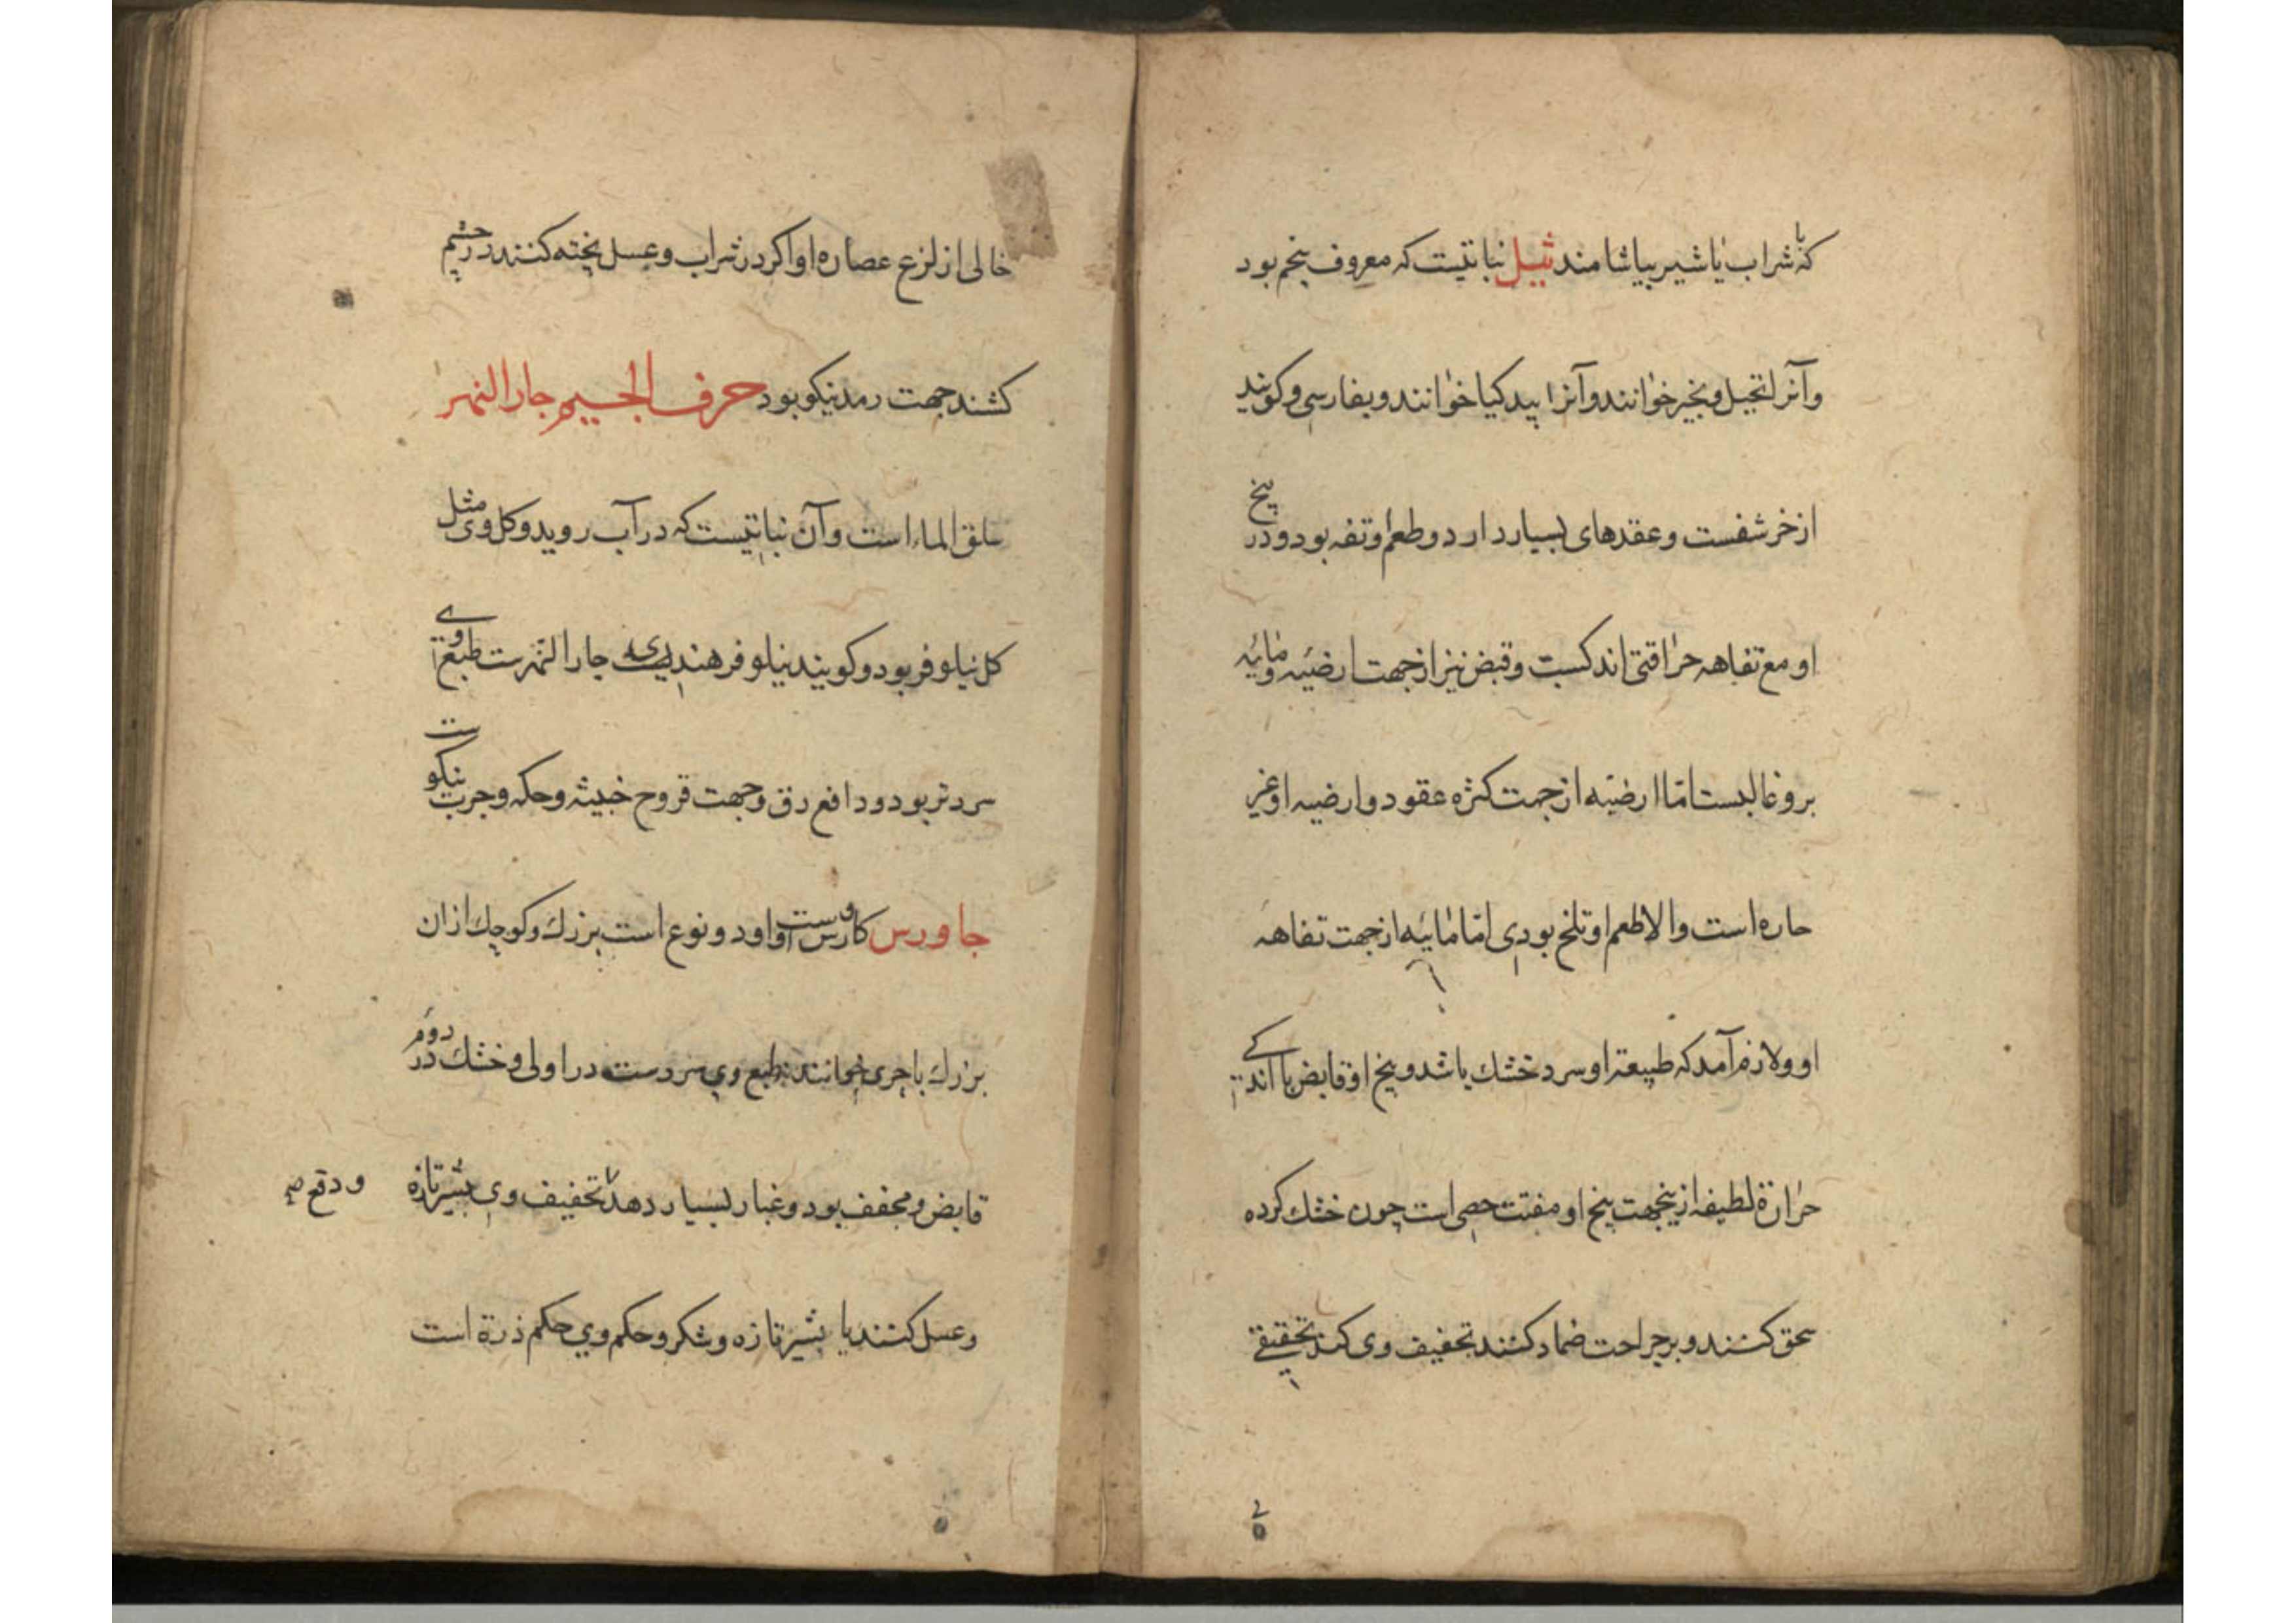 که با شراب یا شیر بیاشامند ثیل نباتیست که معروف بنجم بود
وآنرا نخیل و نجیر خوانند وآنرا بید کیا خوانند وبفارسی وکویند
از خر شفست وعقدهای بسیار دارد وطعم او تفه بود ودر بیخ
او مع تفاهه حراقتی اندکست وقبض نیز از جهت ارضیه ومائیه
برو غالبست امّا ارضیّه از جهت کثره عقود وارضیه او غیر
حاره است والا طعم او تلخ بودی امّا مائیه از جهت تفاهه
او ولازم آمد که طبیعة او سرد خشك باشد وبیخ او قابض با اندکے
حرارة لطیفه ازینجهت بیخ او مفتت حصی است چون خشك کرده
سحق کنند وبر جراحت ضماد کنند تجفیف وی کند تجفیفے
خالی از لزع عصاره او اکر در شراب وعسل پخته کنند در چشم
کشند جهت رمد نیکو بود حرف الجیم جار النهر
سلق الماء است وآن نباتیست که در آب روید وکل وی مثل
کل نیلوفر بود وکویند نیلوفر هندیست جار النهرست طبع وے
سردتر بود ودافع دق وجهت قروح خبیثه وحکه وجرب نیکوست
جاورس کاورس است واو دو نوع است بزرك وکوچك ازان
بزرك باجری خوانند طبع وی سردست در اولی وخشك در دوم
قابض ومجفف بود وغبار بسیار دهد تجفیف وی بشیر تازه
ودقع
وعسل کنند یا بشیر تازه وشکر وحکم وی حکم ذرة است